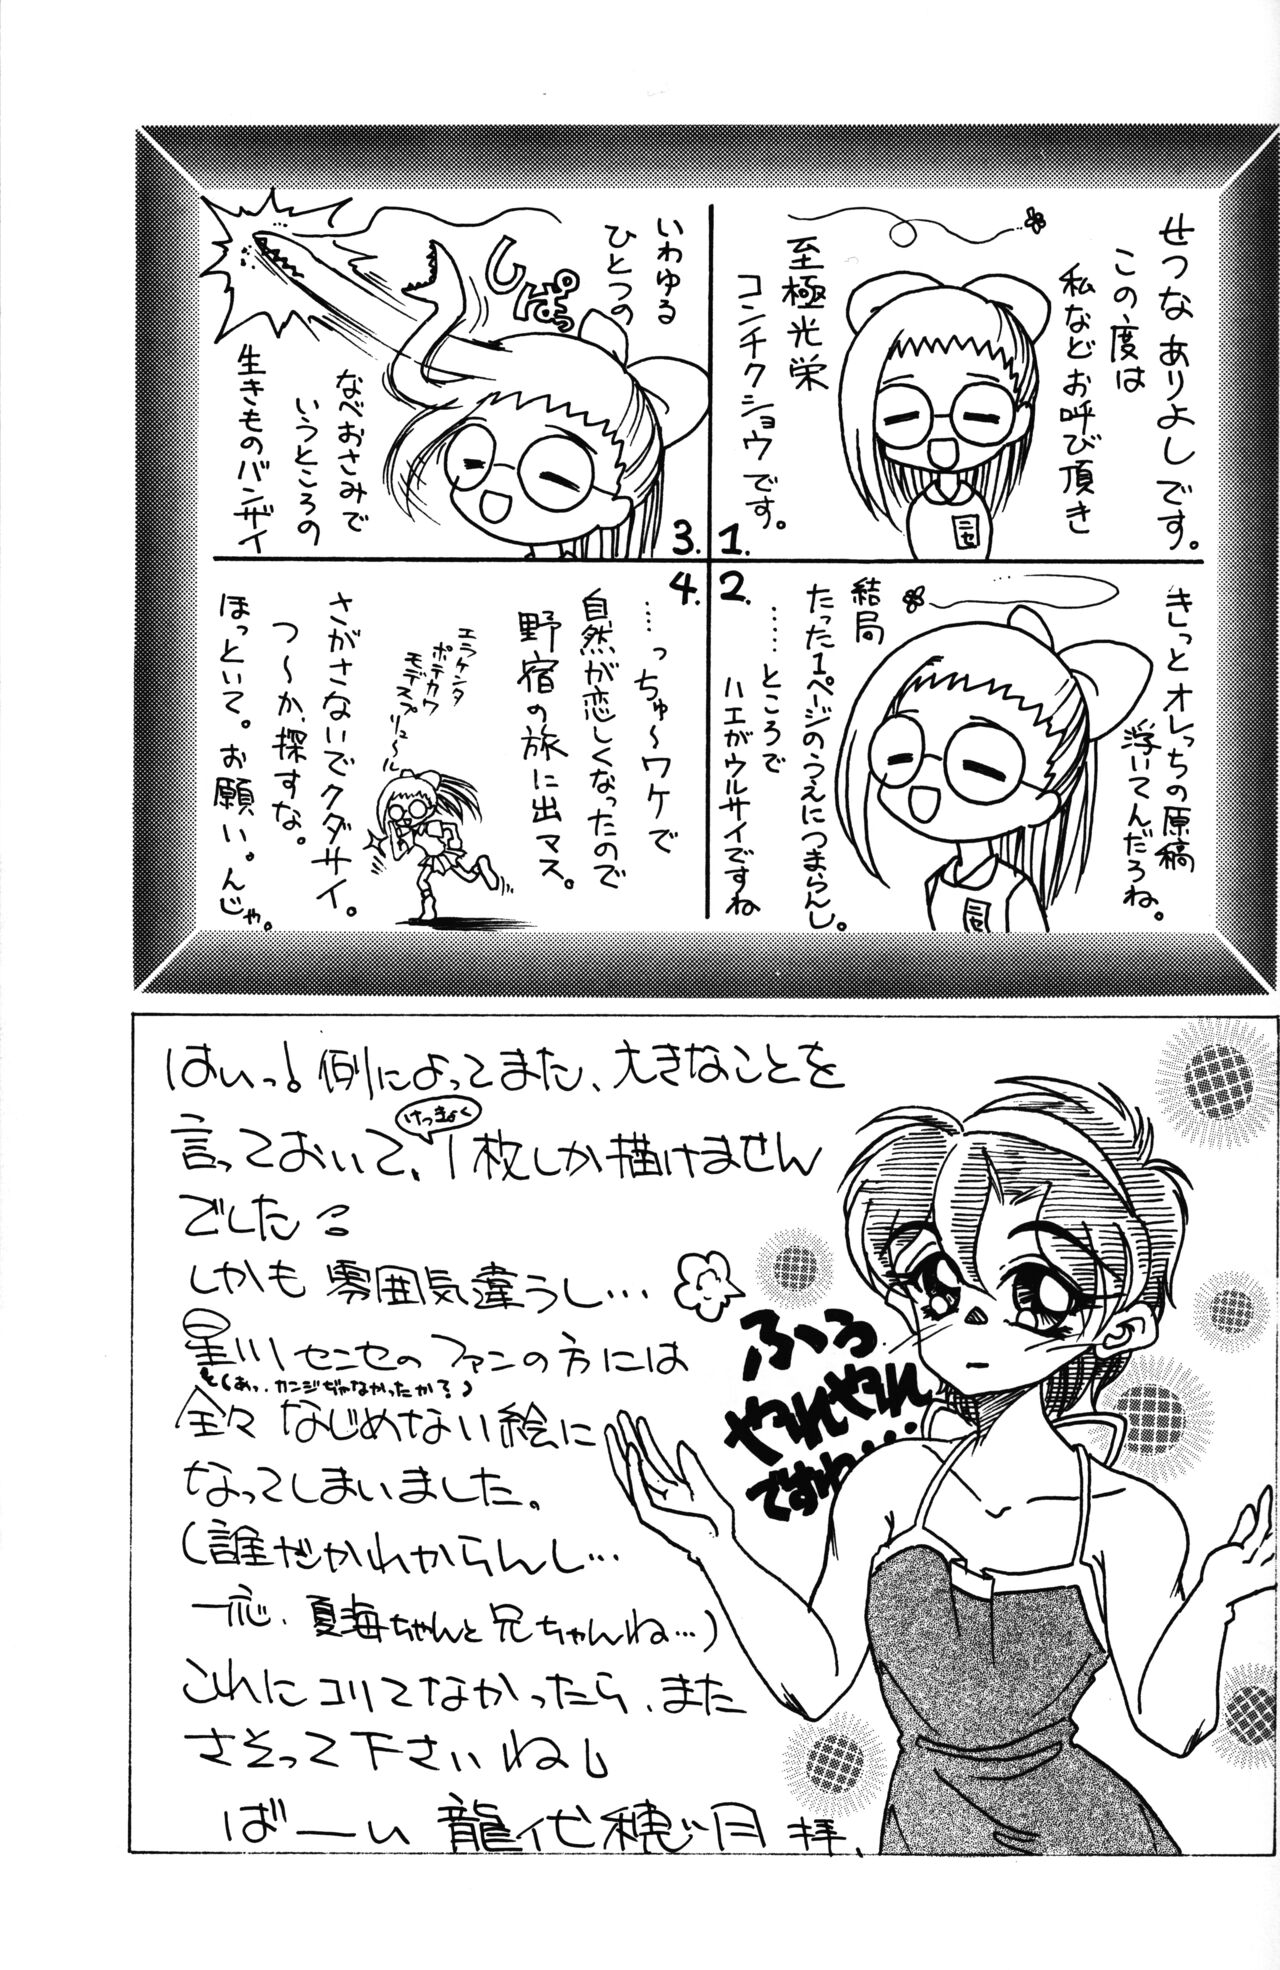 せつなありよしです。
この度は
私などお呼び頂き
至極光栄
コンチクショウです。
ニセ
1.
きしっとオレっちの原稿
浮いてんだろね。
結局
たった1ページのうえにつまらんし。
……ところで
ハエがウルサイですね
ニセ
2.
いわゆる
ひとつの
しぱっ
なべおさみで
いうところの
生きものバンザイ
3.
……っちゅ〜ワケで
自然が恋しくなったので
野宿の旅に出マス。
エラケンタ
ポテカワ
モデスプリュ〜ル
さがさないでクダサイ。
つ〜か、探すな。
ほっといて。お願い。んじゃ。
4.
はいっ!例によってまた、大きなことを
言っておいて、けっきょく1枚しか描けません
でした。
しかも雰囲気違うし…
星川センセのファンの方には
(あっ、カンジぢゃなかったか?)
全々なじめない絵に
なってしまいました。
(誰だかわからんし…
一応、夏海ちゃんと兄ちゃんね…)
これにコリてなかったら、また
さそって下さいねし
ばーい 龍代穂づ月 拝、
ふぅ
やれやれ
ですわ…